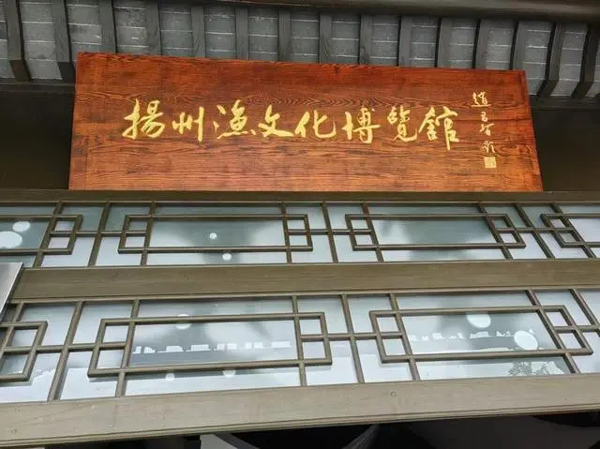 揚州漁文化博覽館